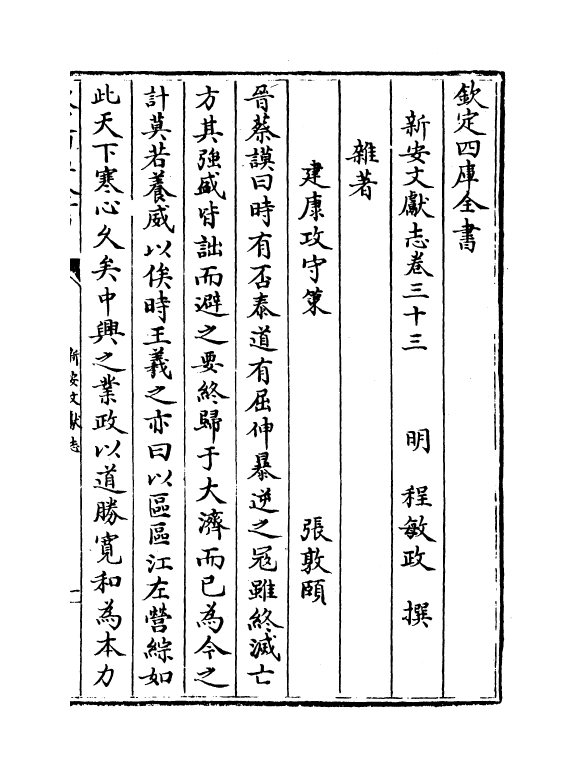 欽定四庫全書
新安文獻志卷三十三　　明　程敏政　撰
雜著
建康攻守策　　　張敦頤
晉蔡謨曰時有否泰道有屈伸暴逆之冦雖終滅亡
方其強盛皆詘而避之要終歸于大濟而已為今之
計莫若養威以俟時王羲之亦曰以區區江左營綜如
此天下寒心久矣中興之業政以道勝寛和為本力
新安文獻志
一